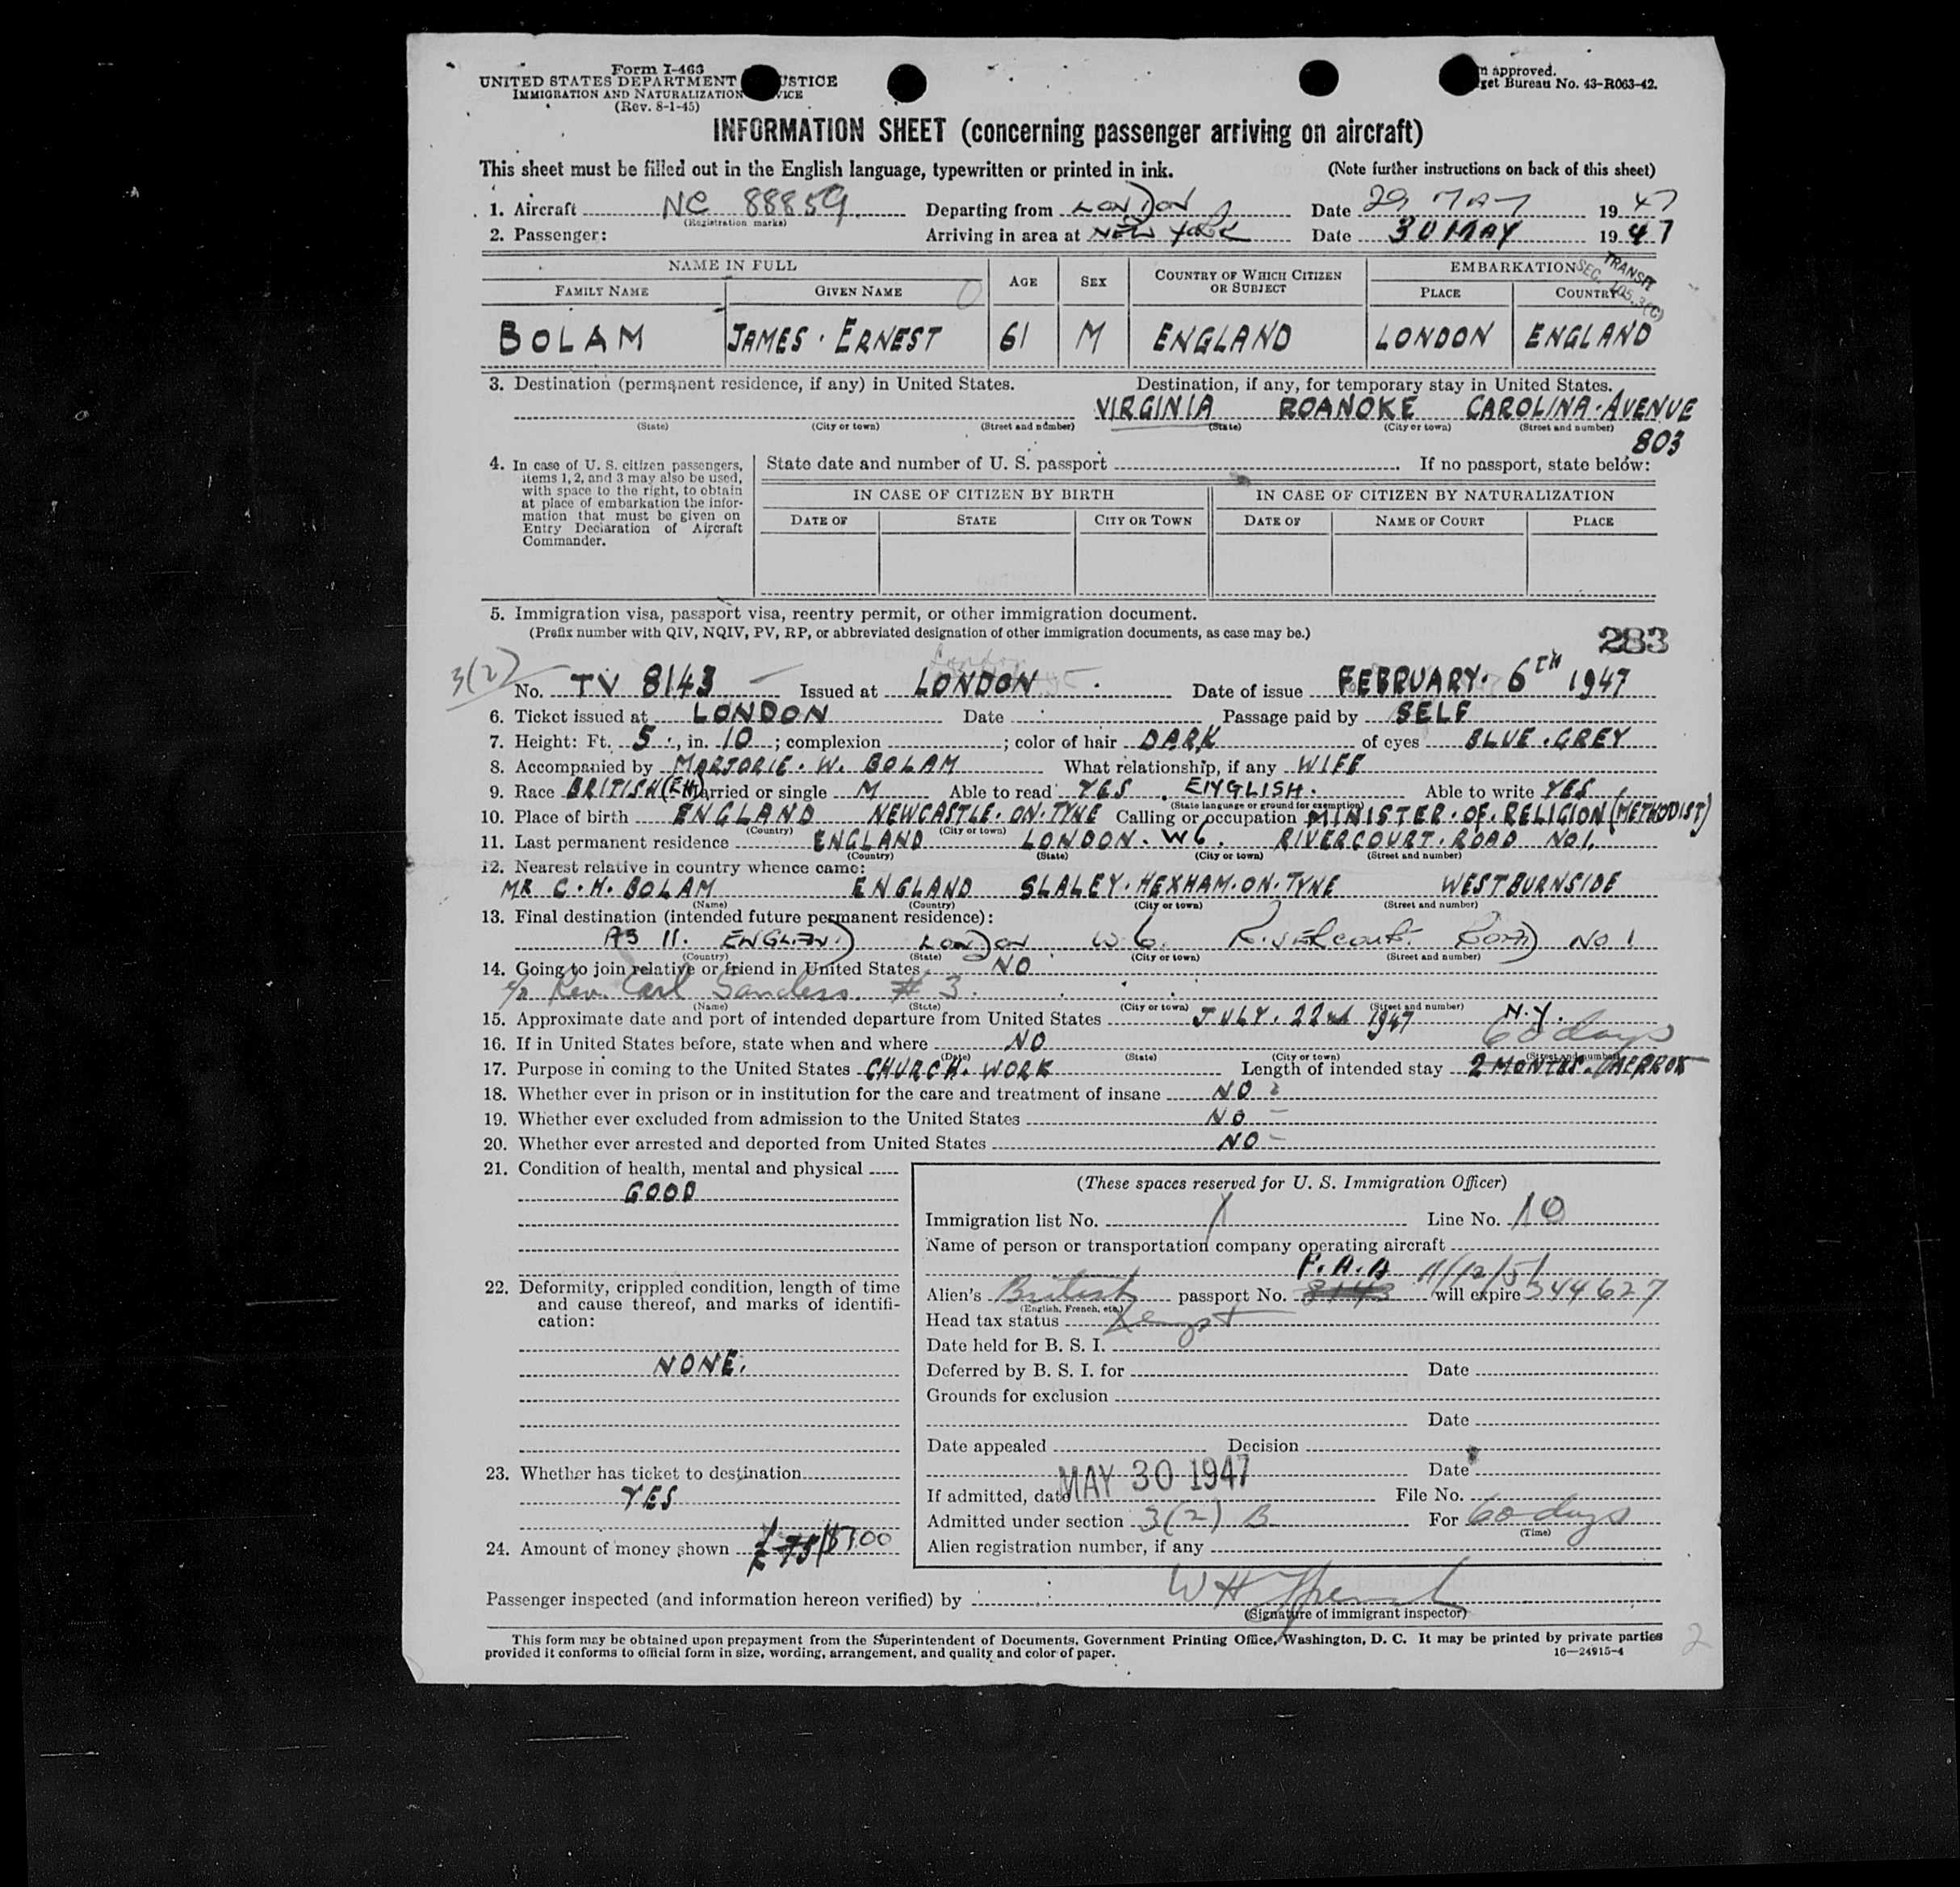 Form I-463
UNITED STATES DEPARTMENT USTICE
IMMIGRATION AND NATURALIZATION VICE
(Rev. 8-1-45)
n approved.
get Bureau No. 43-R063-42.
INFORMATION SHEET (concerning passenger arriving on aircraft)
This sheet must be filled out in the English language, typewritten or printed in ink. (Note further instructions on back of this sheet)
1. Aircraft NC 88859 Departing from LONDON Date 29 MAY 1947
(Registration marks)
2. Passenger: Arriving in area at NEW YORK Date 30 MAY 1947
NAME IN FULL AGE SEX COUNTRY OF WHICH CITIZEN OR SUBJECT EMBARKATION
TRANSIT
SEC. 105.3(C)
FAMILY NAME GIVEN NAME PLACE COUNTRY
BOLAM JAMES · ERNEST 61 M ENGLAND LONDON ENGLAND
3. Destination (permanent residence, if any) in United States. Destination, if any, for temporary stay in United States.
VIRGINIA ROANOKE CAROLINA · AVENUE
(State) (City or town) (Street and number) (State) (City or town) (Street and number)
803
4. In case of U. S. citizen passengers, items 1, 2, and 3 may also be used, with space to the right, to obtain at place of embarkation the information that must be given on Entry Declaration of Aircraft Commander.
State date and number of U. S. passport If no passport, state below:
IN CASE OF CITIZEN BY BIRTH IN CASE OF CITIZEN BY NATURALIZATION
DATE OF STATE CITY OR TOWN DATE OF NAME OF COURT PLACE
5. Immigration visa, passport visa, reentry permit, or other immigration document.
(Prefix number with QIV, NQIV, PV, RP, or abbreviated designation of other immigration documents, as case may be.)
283
3(2) No. TV 8143 Issued at LONDON Date of issue FEBRUARY · 6TH 1947
6. Ticket issued at LONDON Date Passage paid by SELF
7. Height: Ft. 5, in. 10; complexion ; color of hair DARK of eyes BLUE · GREY
8. Accompanied by MARJORIE · W. BOLAM What relationship, if any WIFE
9. Race BRITISH (EN) Married or single M Able to read YES . ENGLISH. Able to write YES
(State language or ground for exemption)
10. Place of birth ENGLAND NEWCASTLE · ON · TYNE Calling or occupation MINISTER · OF · RELIGION (METHODIST)
(Country) (City or town)
11. Last permanent residence ENGLAND LONDON · W6. RIVERCOURT · ROAD NO 1.
(Country) (State) (City or town) (Street and number)
12. Nearest relative in country whence came:
MR C · H · BOLAM ENGLAND SLALEY · HEXHAM · ON · TYNE WESTBURNSIDE
(Name) (Country) (City or town) (Street and number)
13. Final destination (intended future permanent residence):
AS 11. ENGLAND LONDON W6. Rivercourt Road NO 1
(Country) (State) (City or town) (Street and number)
14. Going to join relative or friend in United States NO
c/o Rev. Carl Sanders. # 3.
(Name) (State) (City or town) (Street and number)
15. Approximate date and port of intended departure from United States JULY · 22nd 1947 N.Y.
16. If in United States before, state when and where NO 60 days
(Date) (State) (City or town) (Street and number)
17. Purpose in coming to the United States CHURCH · WORK Length of intended stay 2 MONTHS
18. Whether ever in prison or in institution for the care and treatment of insane NO
19. Whether ever excluded from admission to the United States NO
20. Whether ever arrested and deported from United States NO
21. Condition of health, mental and physical
GOOD
22. Deformity, crippled condition, length of time and cause thereof, and marks of identification:
NONE.
23. Whether has ticket to destination
YES
24. Amount of money shown £ 75 $100
(These spaces reserved for U. S. Immigration Officer)
Immigration list No. 1 Line No. 10
Name of person or transportation company operating aircraft
P.A.A 11/12/51
Alien's British passport No. 8143 will expire 344627
(English, French, etc.)
Head tax status Exempt
Date held for B. S. I.
Deferred by B. S. I. for Date
Grounds for exclusion
Date
Date appealed Decision
Date
If admitted, date MAY 30 1947 File No.
Admitted under section 3(2) B For 60 days
(Time)
Alien registration number, if any
Passenger inspected (and information hereon verified) by W H
(Signature of immigrant inspector)
This form may be obtained upon prepayment from the Superintendent of Documents, Government Printing Office, Washington, D. C. It may be printed by private parties
provided it conforms to official form in size, wording, arrangement, and quality and color of paper. 16—24915-4
2